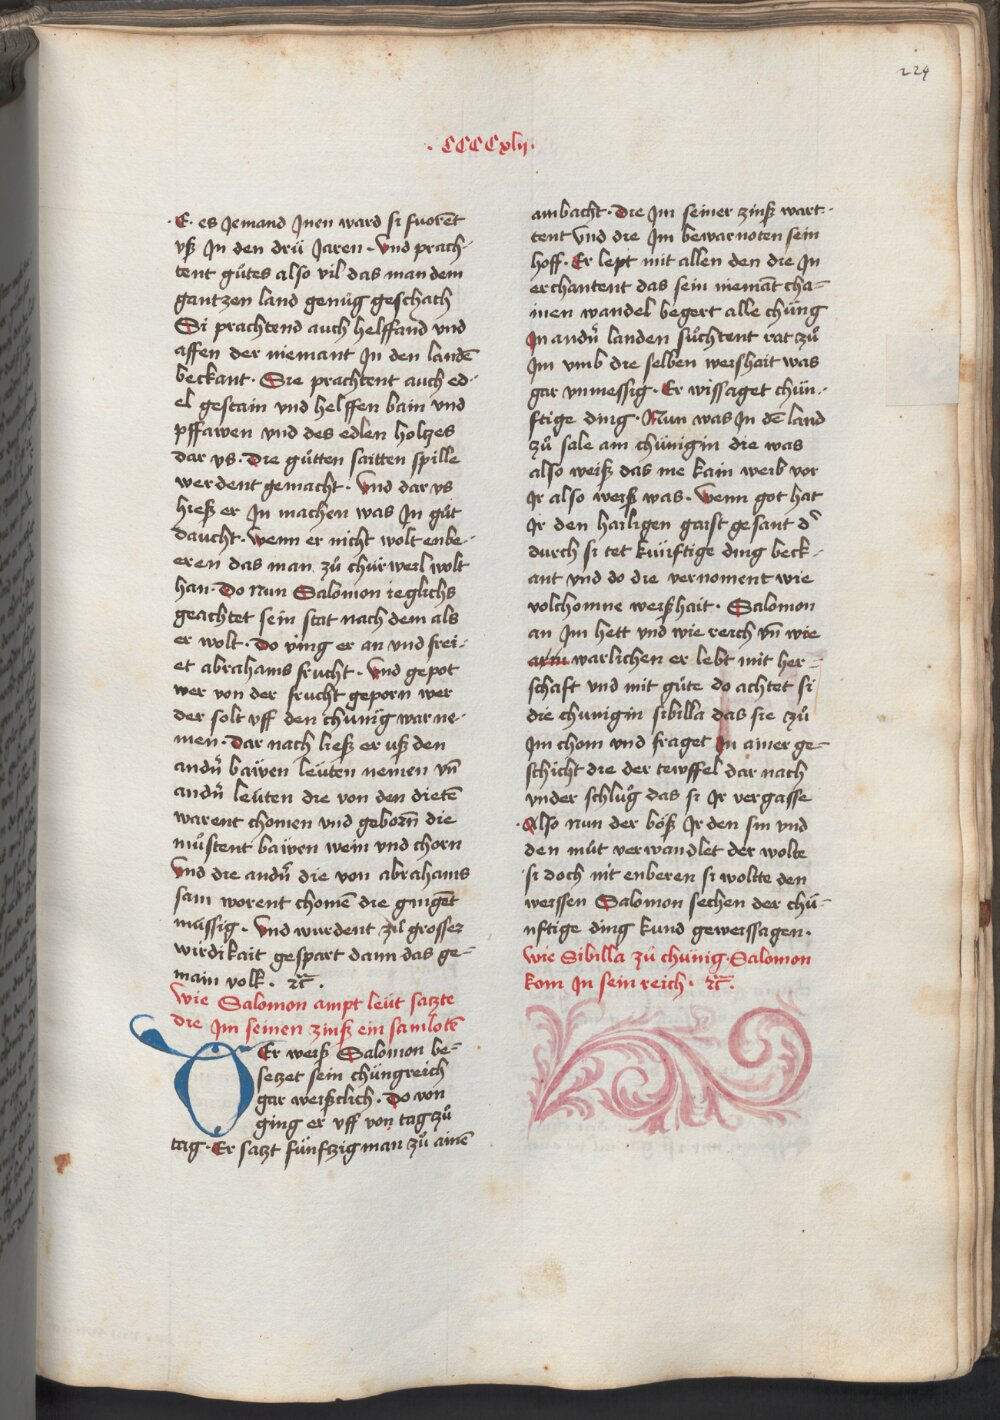 224
· CCCCxlij ·
·E· es Jemand Jnen ward si fuorēt
vß Jn den drü Jaren · Vnd prach-
tent gůtes also vil das man dem
gantzen land genůg geschach
Si prachtend auch helffand vnd
affen der niemant Jn den landē
beckant · Sie prachtent auch ed-
el gestain vnd helffen bain vnd
pffawen vnd des edlen holtzes
dar vs · Die gůtten saitten spille
werdent gemacht · Vnd dar vs
hieß er Jn machen was Jn gůt
daucht · Wenn er nicht wolt enbe-
eren das man zů churwerl wolt
han · Do nun Salomon ieglichs
geachtet sein stat nach dem als
er wolt · Do ving er an vnd frei-
et abrahams frucht · Vnd gepot
wer von der frucht geporn wer
der solt vff den chunig war ne-
men · Dar nach ließ er uß den
andn̄ baẅen leüten nemen vn̄
andn̄ leüten die von den dietē
warent chomen vnd geborn̄ die
můstent bawen wein vnd chorn
Vnd die andn̄ die von abrahams
sam worent chomē die gingēt
müssig · Vnd wurdent zil grosser
wirdikait gespart dann das ge-
main volk · ꝛc̄ ·
Wie Salomon ampt leüt satzte
die Jm seinen zinß ein samlotē
Der weiß Salomon be-
setzet sein chüngreich
gar weißclich · Do von
ging er vff von tag zů
tag · Er satzt fünftzig man zů ainē
ambacht · Die Jm seiner zinß wart-
tent vnd die Jm bewarnoten sein
hoff · Er lept mit allen den die Jn
erchantent das sein niemāt cha-
inen wandel begert alle chüng
Jn andn̄ landen sůchtent rat zů
Jm vmb die selben weishait was
gar vnmessig · Er wissaget chün-
ftige ding · Nun was Jn dē land
zů sale ain chünigin die was
also weiß das nie kain weib vor
Jr also weiß was · Wenn got hat
Jr den hailigen gaist gesant d̄
durch si tet künftige ding beck-
ant vnd do die vernoment wie
volchomne weißhait · Salomon
an Jm hett vnd wie reich vn̄ wie
arm warlichen er lebt mit her-
schaft vnd mit güte do achtet si
die chunigin sibilla das sie zů
Jm chom vnd fraget Jn ainer ge-
schicht die der tewffel dar nach
vnder schlůg das si Jr vergasse
· Also nun der böß Jr den sin vnd
den můt verwandlet der wolte
si doch nit enberen si woltte den
weissen Salomon sechen der chü-
nftige ding kund geweissagen ·
Wie Sibilla zů chunig · Salomon
kom Jn sein reich · ꝛc̄ ·